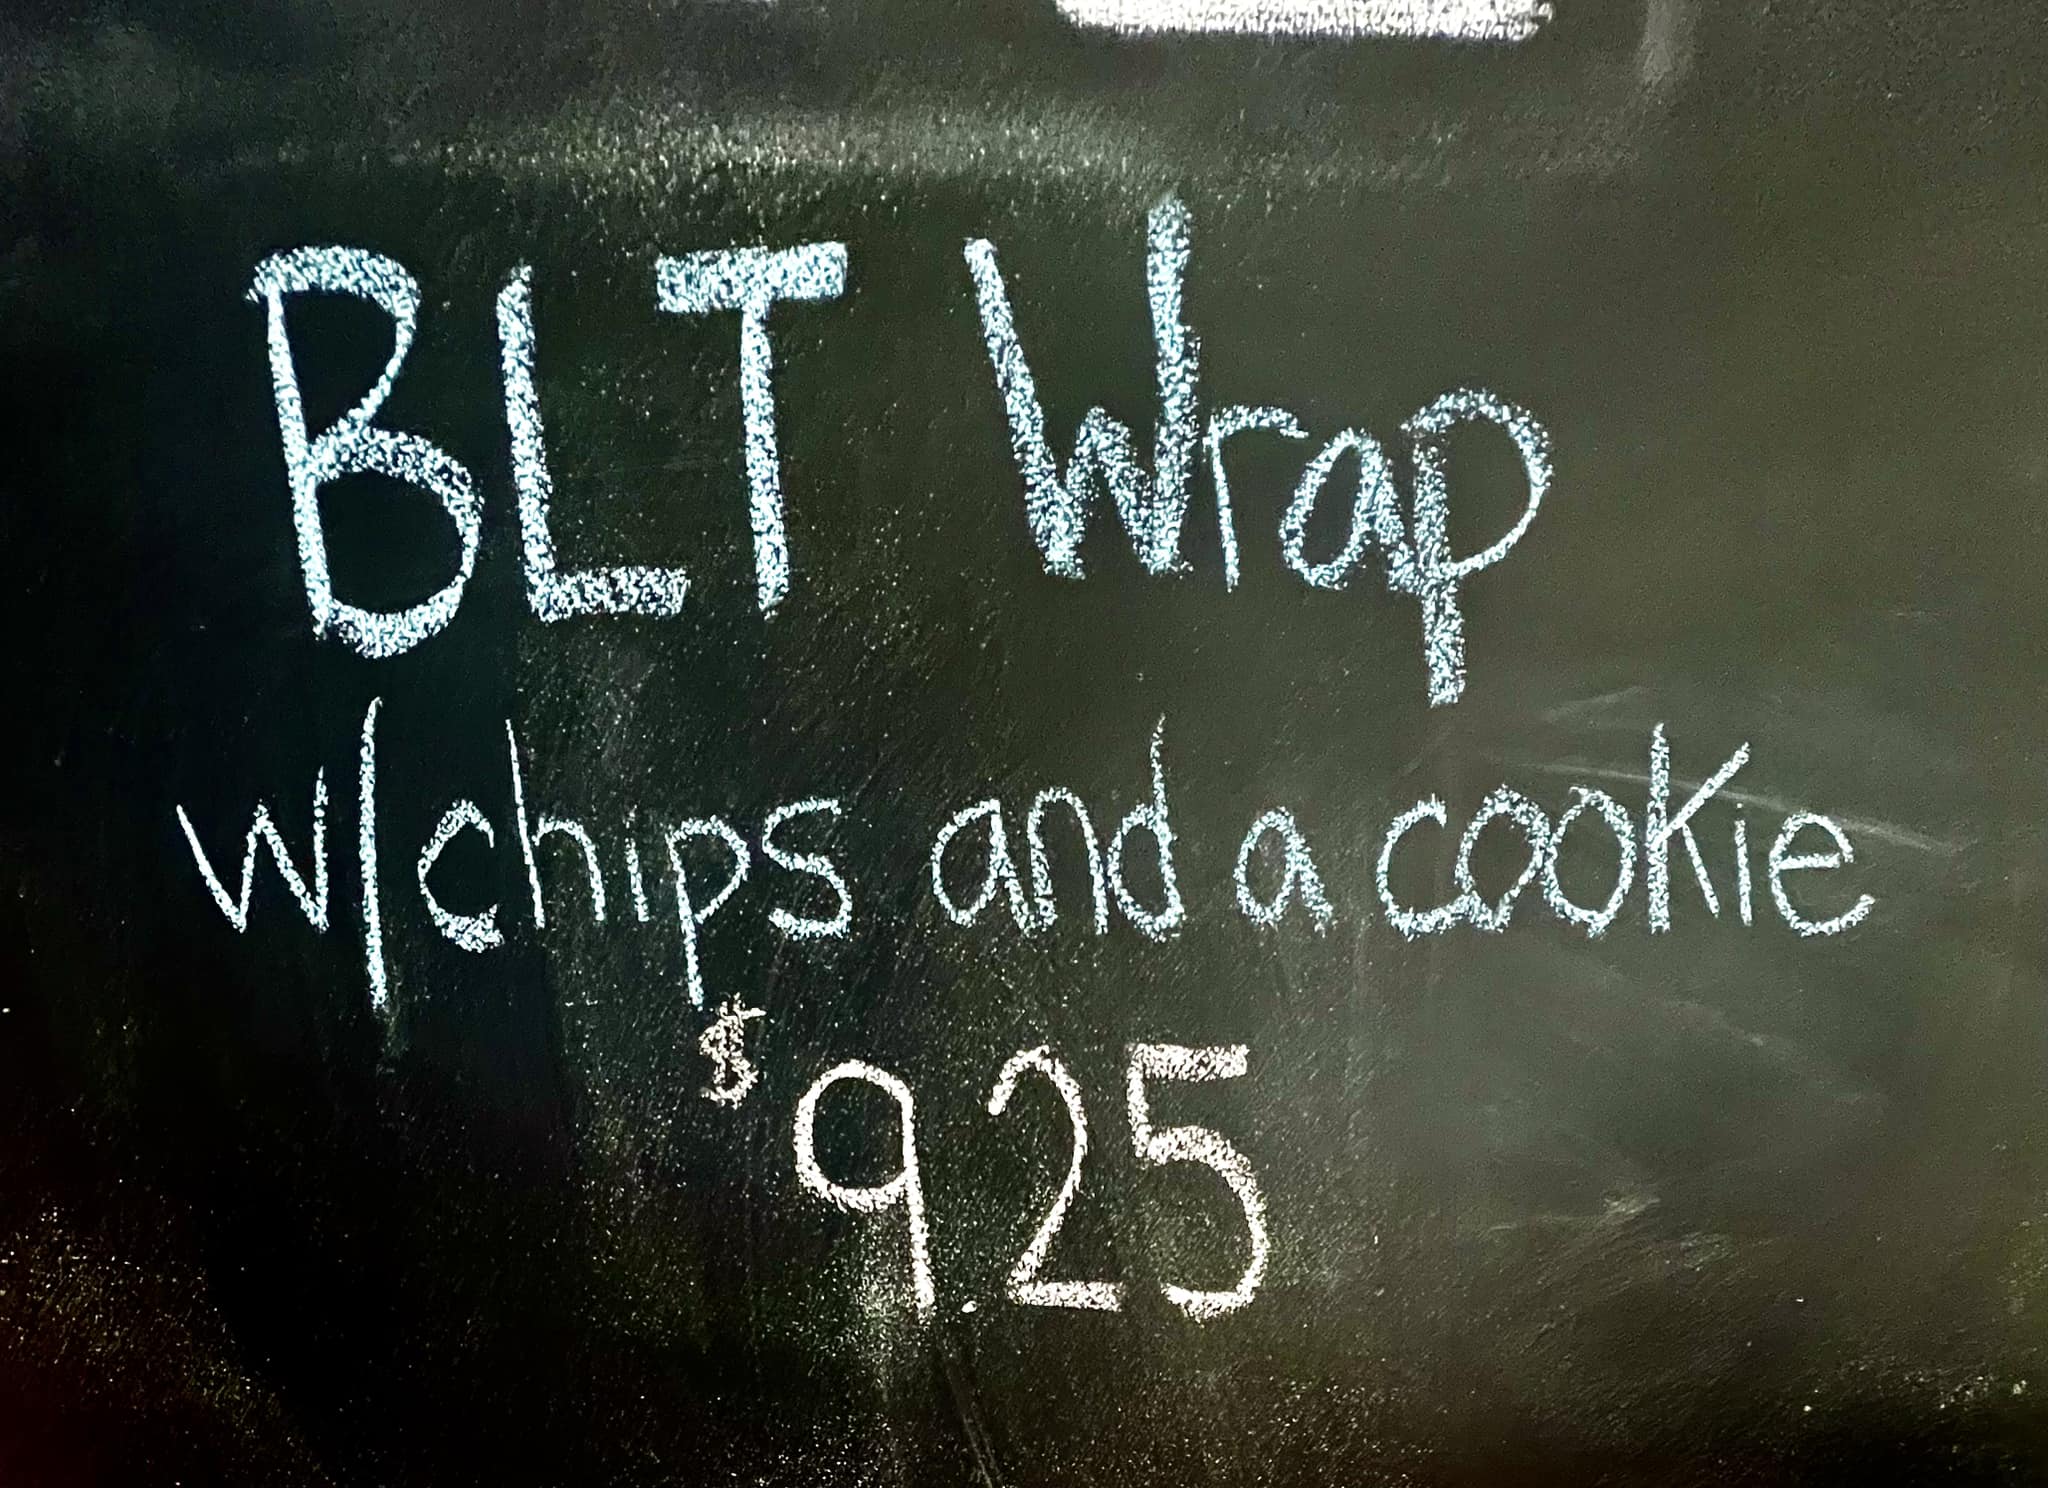 BLT Wrap
w/chips and a cookie
$9.25